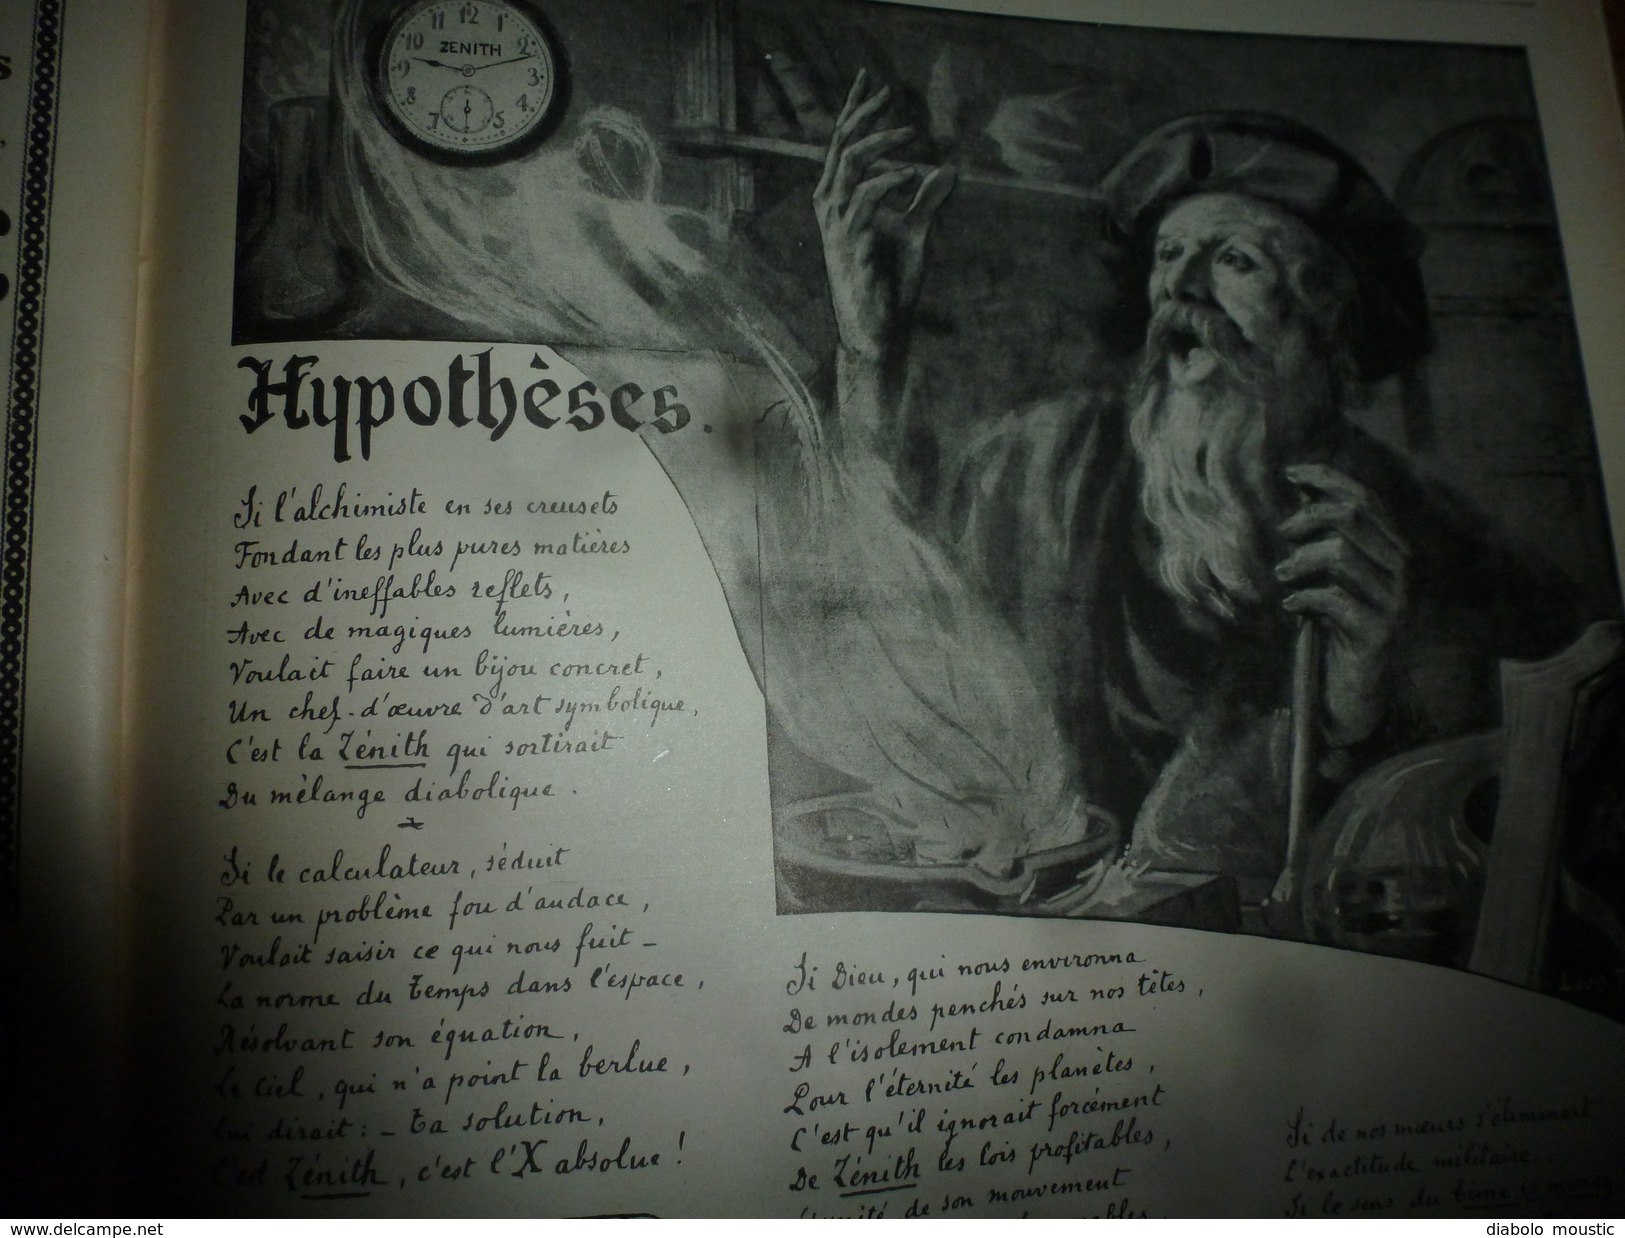 12
11 1
10 ZENITH 2
9 3
8 4
7 5
Hypothèses.
Si l'alchimiste en ses creusets
Fondant les plus pures matières
Avec d'ineffables reflets,
Avec de magiques lumières,
Voulait faire un bijou concret,
Un chef-d'œuvre d'art symbolique,
C'est la Zénith qui sortirait
Du mélange diabolique.
Si le calculateur, séduit
Par un problème fou d'audace,
Voulait saisir ce qui nous fuit —
La norme du temps dans l'espace,
Résolvant son équation,
Le Ciel, qui n'a point la berlue,
Lui dirait : — ta solution,
C'est Zénith, c'est l'X absolue !
Si Dieu, qui nous environna
De mondes penchés sur nos têtes,
A l'isolement condamna
Pour l'éternité les planètes,
C'est qu'il ignorait forcément
De Zénith les lois profitables,
de son mouvement
Si de nos mœurs s'éliminait
L'exactitude militaire
Si le sens du temps
diabolo moustic